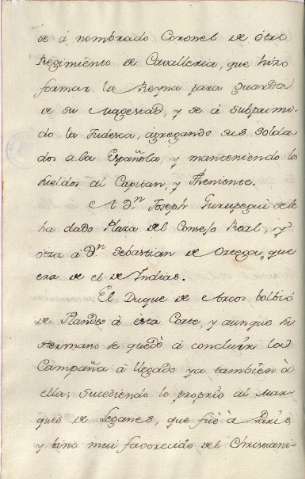 se á nombrado Coronel de otro
Regimiento de Cavalleria, que hizo
formar la Reyna para guardia
de su Magestad, y se á suprimi-
do la Tudesca, agregando sus Solda-
dos a la Española, y manteniendo los
sueldos al Capitan, y Theniente.
A Dn Joseph se le
ha dado Plaza del Consejo Real, y
otra á Dn Sebastian de Ortega, que
era de el de Indias.
El Duque de Arcos bolbió
de Flandes á esta Corte, y aunque su
hermano se quedó á concluir la
Campaña á llegado ya tambien á
ella, sucediendo lo proprio al Mar-
ques de Leganes, que fué á Paris
y bino mui faborecido del Christiani-